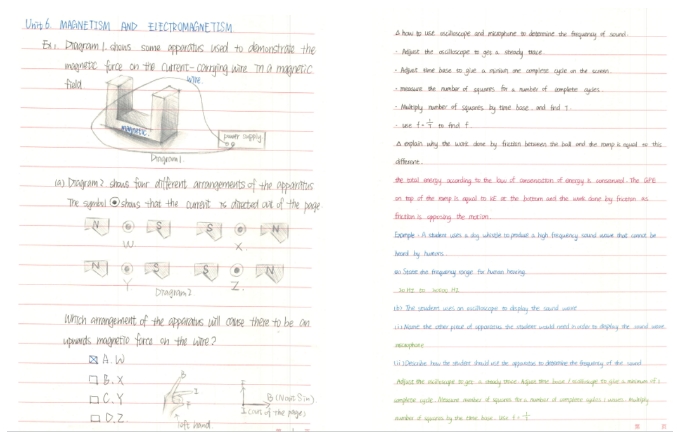 Unit 6. MAGNETISM AND ELECTROMAGNETISM
Ex: Diagram 1. shows some apparatus used to demonstrate the
magnetic force on the current-carrying wire in a magnetic
field
wire.
magnetic.
power supply
Diagram 1
(a) Diagram 2 shows four different arrangements of the apparatus
The symbol ⊙ shows that the current is directed out of the page
N S S N
W X
N S S N
Y Z.
Diagram 2
Which arrangement of the apparatus will cause there to be an
upwards magnetic force on the wire?
A. W
B. X
C. Y
D. Z.
B
I
F
left hand
F
B (N out S in)
I (out of the page)
Δ how to use oscilloscope and microphone to determine the frequency of sound.
- Adjust the oscilloscope to get a steady trace
- Adjust time base to give a minimum one complete cycle on the screen.
- measure the number of squares for a number of complete cycles.
- Multiply number of squares by time base and find T.
- use f = 1/T to find f.
Δ explain why the work done by friction between the ball and the ramp is equal to this
difference.
the total energy according to the law of conservation of energy is conserved. The GPE
on top of the ramp is equal to KE at the bottom and the work done by friction as
friction is opposing the motion.
Example: A student uses a dog whistle to produce a high frequency sound wave that cannot be
heard by humans.
(a) State the frequency range for human hearing.
20 Hz to 20000 Hz
(b) The student uses an oscilloscope to display the sound wave
(i) Name the other piece of apparatus the student would need in order to display the sound wave
microphone
(ii) Describe how the student should use the apparatus to determine the frequency of the sound
Adjust the oscilloscope to get a steady trace. Adjust time base / oscilloscope to give a minimum of 1
complete cycle. Measure number of squares for a number of complete cycles / waves. multiply
number of squares by the time base. Use f = 1/T